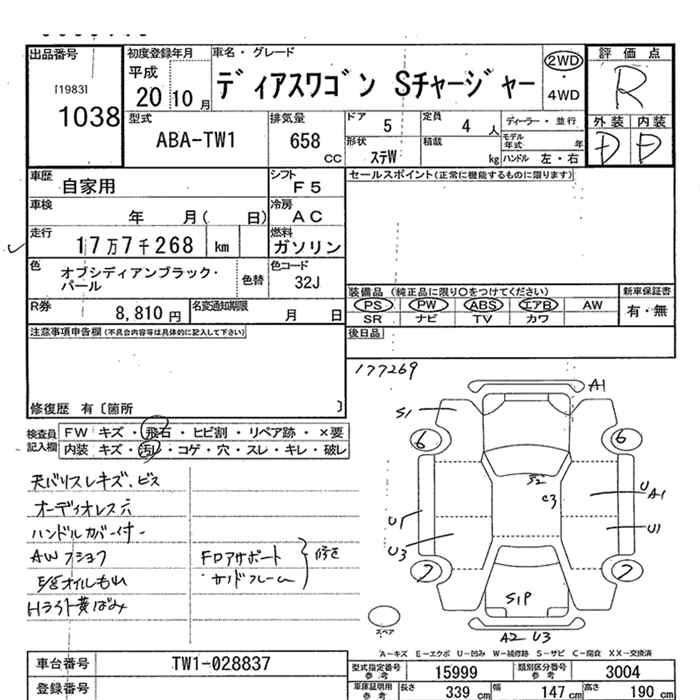 出品番号
[1983]
1038
初度登録年月
平成
20 10 月
車名・グレード
ディアスワゴン Sチャージャー
2WD
・
4WD
評価点
R
外装 内装
D D
型式
ABA-TW1
排気量
658
CC
ドア 5
定員 4 人
ディーラー・並行
形状 ステW
積載 kg
モデル年式 年
ハンドル 左・右
車歴 自家用
シフト F5
車検 年 月( 日)
冷房 AC
走行 17万7千268 km
燃料 ガソリン
色 オブシディアンブラック・
パール
色替
色コード 32J
R券 8,810 円
名変通知期限 月 日
セールスポイント(正常に機能するものに限ります)
装備品 (純正品に限り○をつけてください)
PS PW ABS エアB AW
SR ナビ TV カワ
新車保証書
有・無
後日品
注意事項申告欄(不具合内容等は具体的に記入して下さい)
修復歴 有〔箇所 〕
177269
検査員
記入欄
FW キズ・飛石・ヒビ割・リペア跡・×要
内装 キズ・汚れ・コゲ・穴・スレ・キレ・破レ
天バリスレキズ、ビス
オーディオレス穴
ハンドルカバー付
AWフショク
E/gオイルもれ
Hライト黄ばみ
FDアサポート
サイドフレーム
修正
A1
S1
6
6
S2
C3
U A1
U1
U1
U3
7
7
S1P
A2 U3
スペア
A-キズ E-エクボ U-凹み W-補修跡 S-サビ C-腐食 XX-交換済
車台番号 TW1-028837
登録番号
型式指定番号 参考 15999
類別区分番号 参考 3004
車庫証明用 参考
長さ 339 cm
幅 147 cm
高さ 190 cm